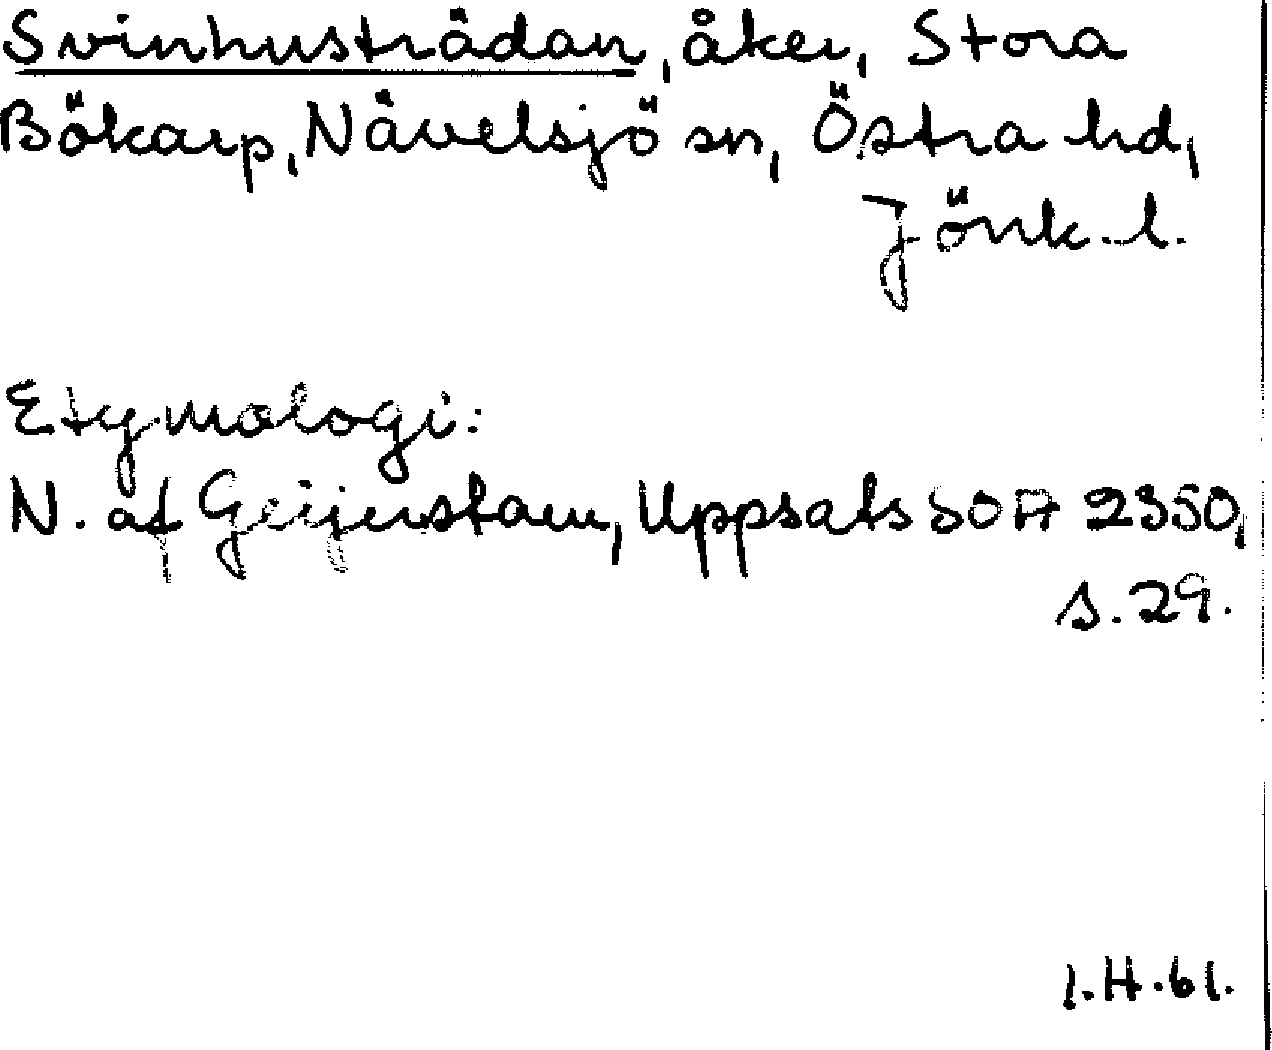 Svinhusträdan, åker, Stora
Bökarp, Nävelsjö sn, Östra hd,
Jönk. l.
Etymologi:
N. af Geijerstam, Uppsats SOA 2350,
s. 29.
I.H.61.